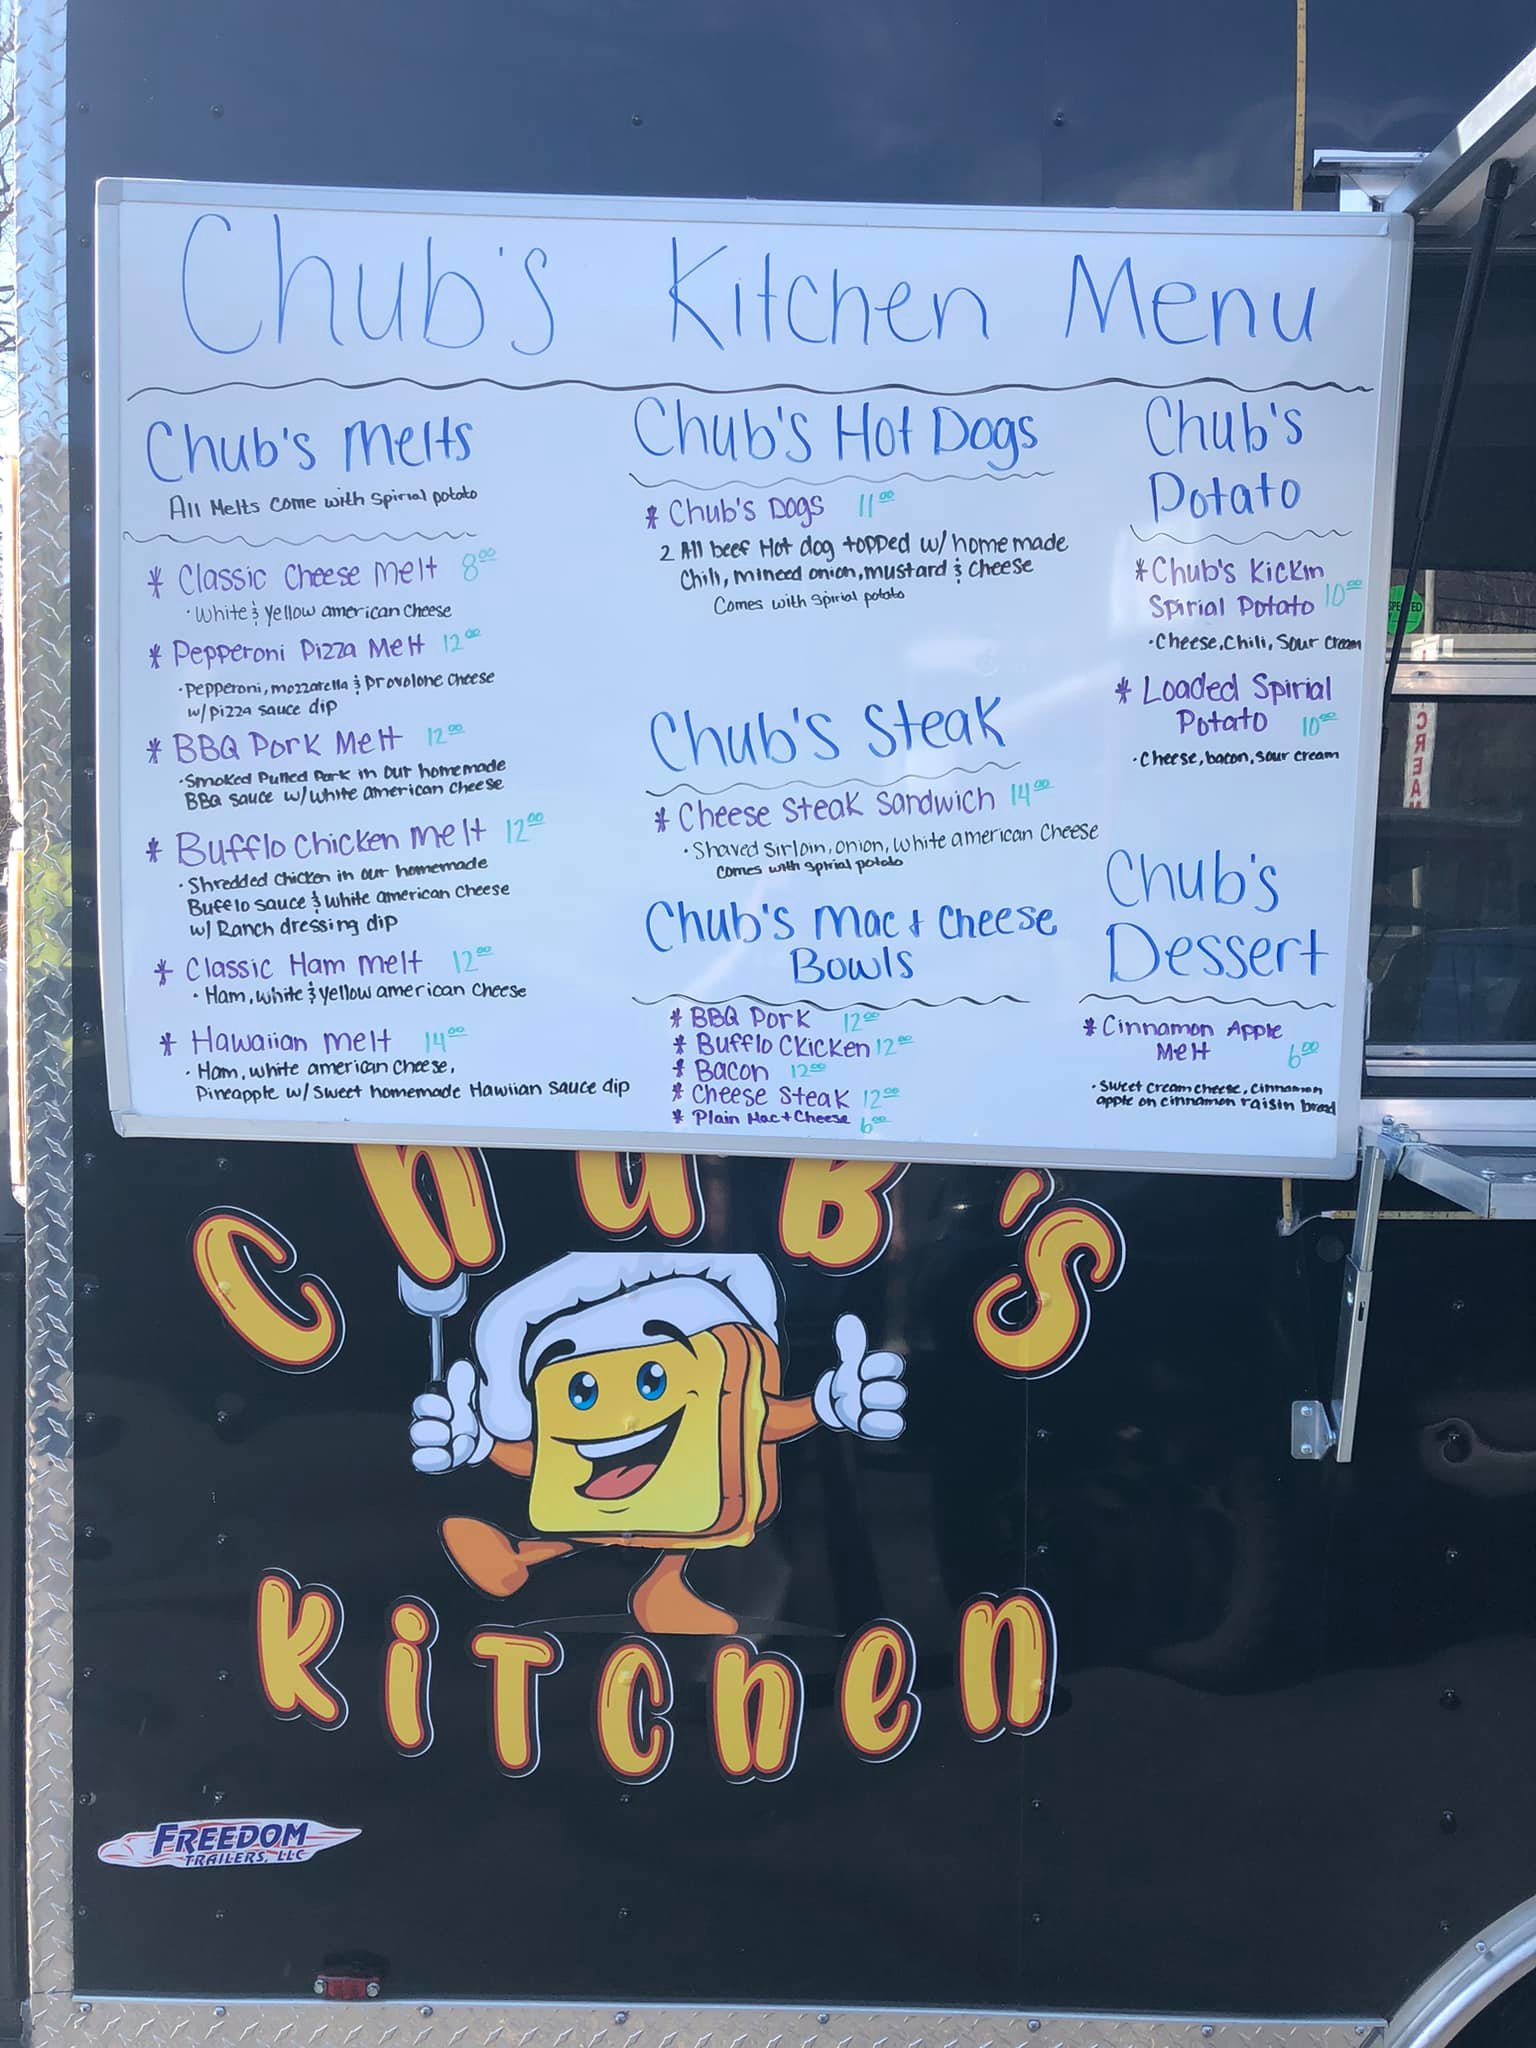 Chub's Kitchen Menu
Chub's Melts
All Melts Come with Spirial potato
* Classic Cheese Melt 8.00
· White & Yellow american Cheese
* Pepperoni Pizza Melt 12.00
· Pepperoni, mozzarella & Provolone Cheese
w/ pizza sauce dip
* BBQ Pork Melt 12.00
· Smoked Pulled Pork in our homemade
BBQ sauce w/ white american cheese
* Bufflo Chicken Melt 12.00
· Shredded Chicken in our homemade
Buffelo sauce & white american Cheese
w/ Ranch dressing dip
* Classic Ham Melt 12.00
· Ham, white & yellow american Cheese
* Hawaiian Melt 14.00
· Ham, white american cheese,
Pineapple w/ Sweet homemade Hawiian Sauce dip
Chub's Hot Dogs
* Chub's Dogs 11.00
2 All beef Hot dog topped w/ homemade
Chili, minced onion, mustard & cheese
Comes with spirial potato
Chub's Steak
* Cheese Steak Sandwich 14.00
· Shaved Sirloin, onion, white american Cheese
comes with spirial potato
Chub's Mac + Cheese
Bowls
* BBQ Pork 12.00
* Bufflo Chicken 12.00
* Bacon 12.00
* Cheese Steak 12.00
* Plain Mac + Cheese 6.00
Chub's
Potato
* Chub's Kickin
Spirial Potato 10.00
· Cheese, Chili, Sour Cream
* Loaded Spirial
Potato 10.00
· Cheese, bacon, sour cream
Chub's
Dessert
* Cinnamon Apple
Melt 6.00
· Sweet cream cheese, cinnamon
apple on cinnamon raisin bread
Chub's
Kitchen
FREEDOM
TRAILERS, LLC